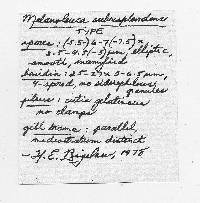 Melanoleuca subresplendens
TYPE
spores: (5.5-) 6-7 (-7.5) x
3.5-4.5(-5) µm, elliptic,
smooth, inamyloid
basidia: 25-27 x 5-6.5 µm,
4-spored, no siderophilous
granules
pileus: cutis gelatinous
no clamps
gill trama: parallel,
mediostratum distinct
- H. E. Bigelow, 1978